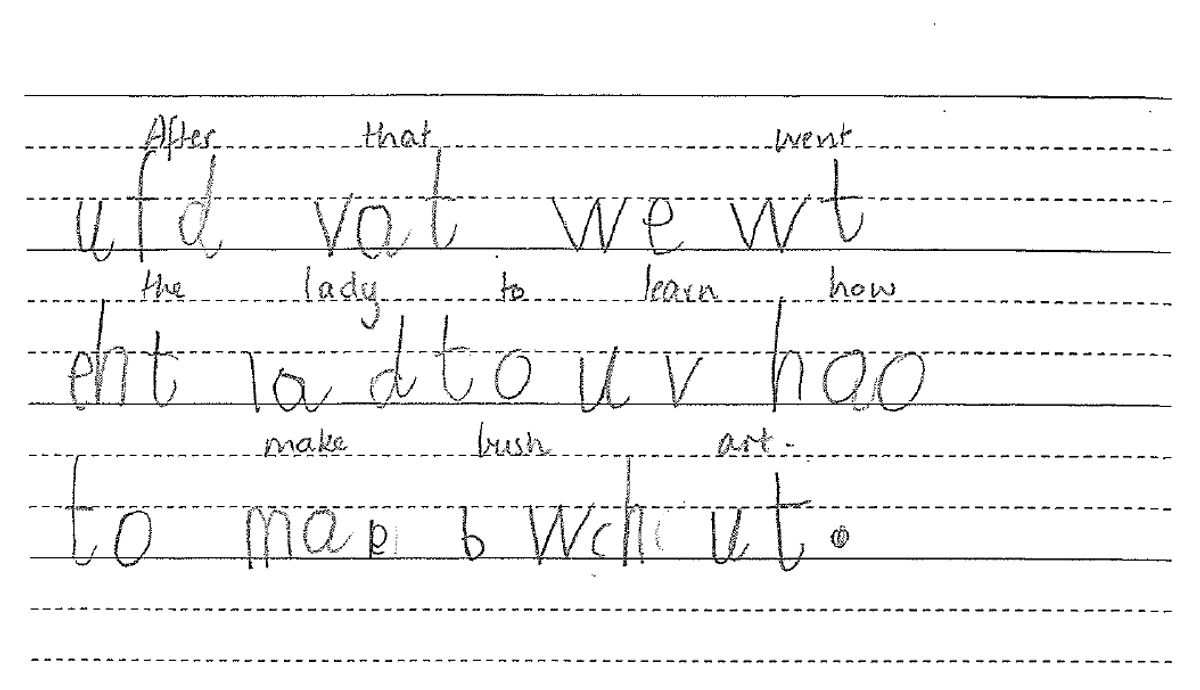 After that went
ufd vat we wt
the lady to learn how
eht lad to uv hao
make bush art.
to mae b wch ut.